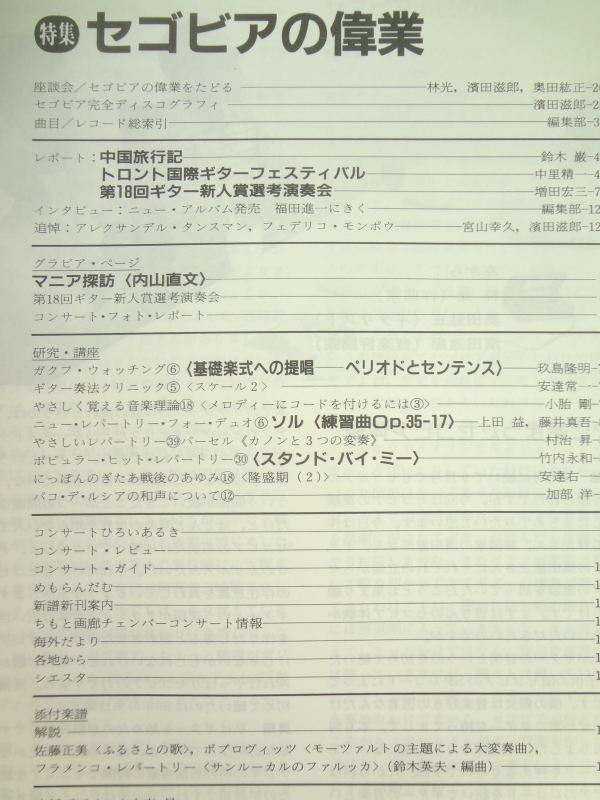 特集 セゴビアの偉業
座談会／セゴビアの偉業をたどる 林光，濱田滋郎，奥田紘正-2
セゴビア完全ディスコグラフィ 濱田滋郎-2
曲目／レコード総索引 編集部-3
レポート：中国旅行記 鈴木 巌-4
トロント国際ギターフェスティバル 中里精一-4
第18回ギター新人賞選考演奏会 増田宏三-7
インタビュー：ニュー・アルバム発売 福田進一にきく 編集部-12
追悼：アレクサンデル・タンスマン，フェデリコ・モンポウ 宮山幸久，濱田滋郎-12
グラビア・ページ
マニア探訪〈内山直文〉
第18回ギター新人賞選考演奏会
コンサート・フォト・レポート
研究・講座
ガクフ・ウォッチング⑥〈基礎楽式への提唱──ペリオドとセンテンス〉 玖島隆明-
ギター奏法クリニック⑤〈スケール２〉 安達常一-
やさしく覚える音楽理論⑱〈メロディーにコードを付けるには③〉 小胎 剛-
ニュー・レパートリー・フォー・デュオ⑥ソル〈練習曲Op.35-17〉 上田 益，藤井真吾-
やさしいレパートリー㊴パーセル《カノンと３つの変奏》 村治 昇-
ポピュラー・ヒット・レパートリー㉚〈スタンド・バイ・ミー〉 竹内永和-
にっぽんのぎたあ戦後のあゆみ⑱〈隆盛期（２）〉 安達右一-
パコ・デ・ルシアの和声について⑫ 加部 洋-
コンサートひろいあるき
コンサート・レビュー
コンサート・ガイド 1
めもらんだむ 1
新譜新刊案内 1
ちもと画廊チェンバーコンサート情報 1
海外だより 1
各地から 1
シエスタ 1
添付楽譜
解説 1
佐藤正美〈ふるさとの歌〉，ボブロヴィッツ〈モーツァルトの主題による大変奏曲〉，
フラメンコ・レパートリー〈サンルーカルのファルッカ〉（鈴木英夫・編曲） 1